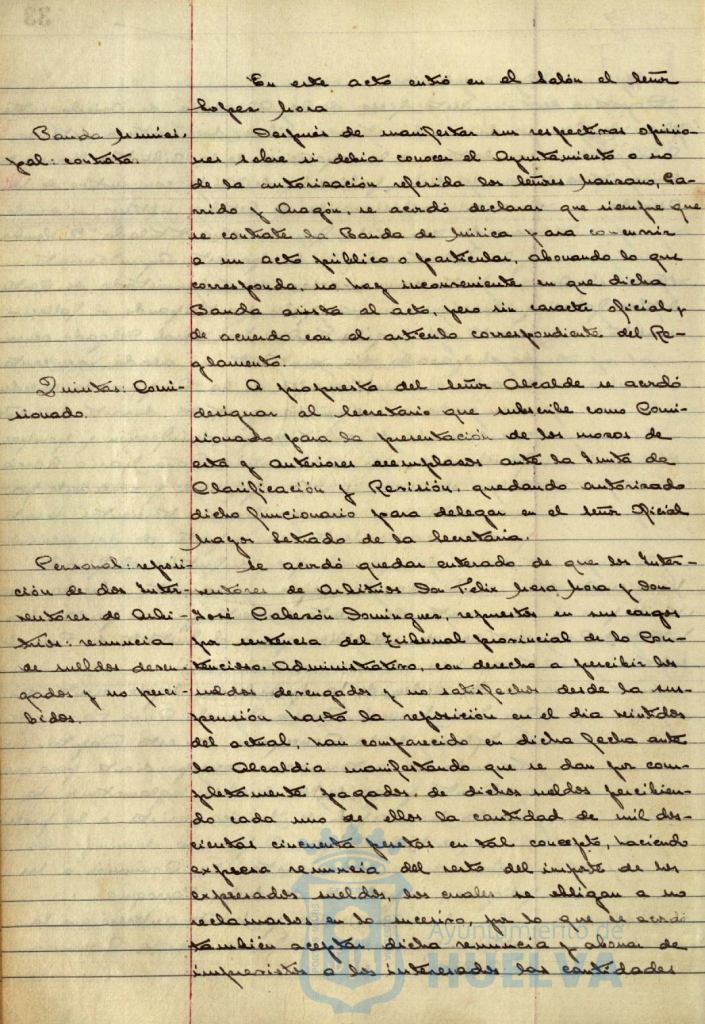 En este acto entró en el Salón el Señor
Lopez Mora
Banda Munici-
pal: contrata.
Después de manifestar sus respectivas opinio-
nes sobre si debia conocer el Ayuntamiento o no
de la autorización referida los Señores Manzano, Ga-
rrido y Aragón, se acordó declarar que siempre que
se contrate la Banda de Música para concurrir
a un acto público o particular, abonando lo que
corresponda, no hay inconveniente en que dicha
Banda asista al acto, pero sin caracter oficial y
de acuerdo con el artículo correspondiente del Re-
glamento.
Quintas: Comi-
sionado.
A propuesta del Señor Alcalde se acordó
designar al Secretario que subscribe como Comi-
sionado para la presentación de los mozos de
este y anteriores reemplazos ante la Junta de
Clasificación y Revisión, quedando autorizado
dicho funcionario para delegar en el Señor Oficial
Mayor Letrado de la Secretaria.
Personal: reposi-
ción de dos Inter-
ventores de Arbi-
trios: renuncia
de sueldos deven-
gados y no perci-
bidos.
Se acordó quedar enterado de que los Inter-
ventores de Arbitrios Don Felix Mora Mora y Don
José Cabezón Dominguez, repuestos en sus cargos
por sentencia del Tribunal provincial de lo Con-
tencioso-Administrativo, con derecho a percibir los
sueldos devengados y no satisfechos desde la sus-
pensión hasta la reposición en el dia veintidos
del actual, han comparecido en dicha fecha ante
la Alcaldia manifestando que se dan por com-
pletamente pagados de dichos sueldos percibien-
do cada uno de ellos la cantidad de mil dos-
cientas cincuenta pesetas en tal concepto, haciendo
expresa renuncia del resto del importe de los
expresados sueldos, los cuales se obligan a no
reclamarlos en lo sucesivo, por lo que se acordó
también aceptar dicha renuncia y abonar de
imprevistos a los interesados las cantidades
Ayuntamiento de
HUELVA